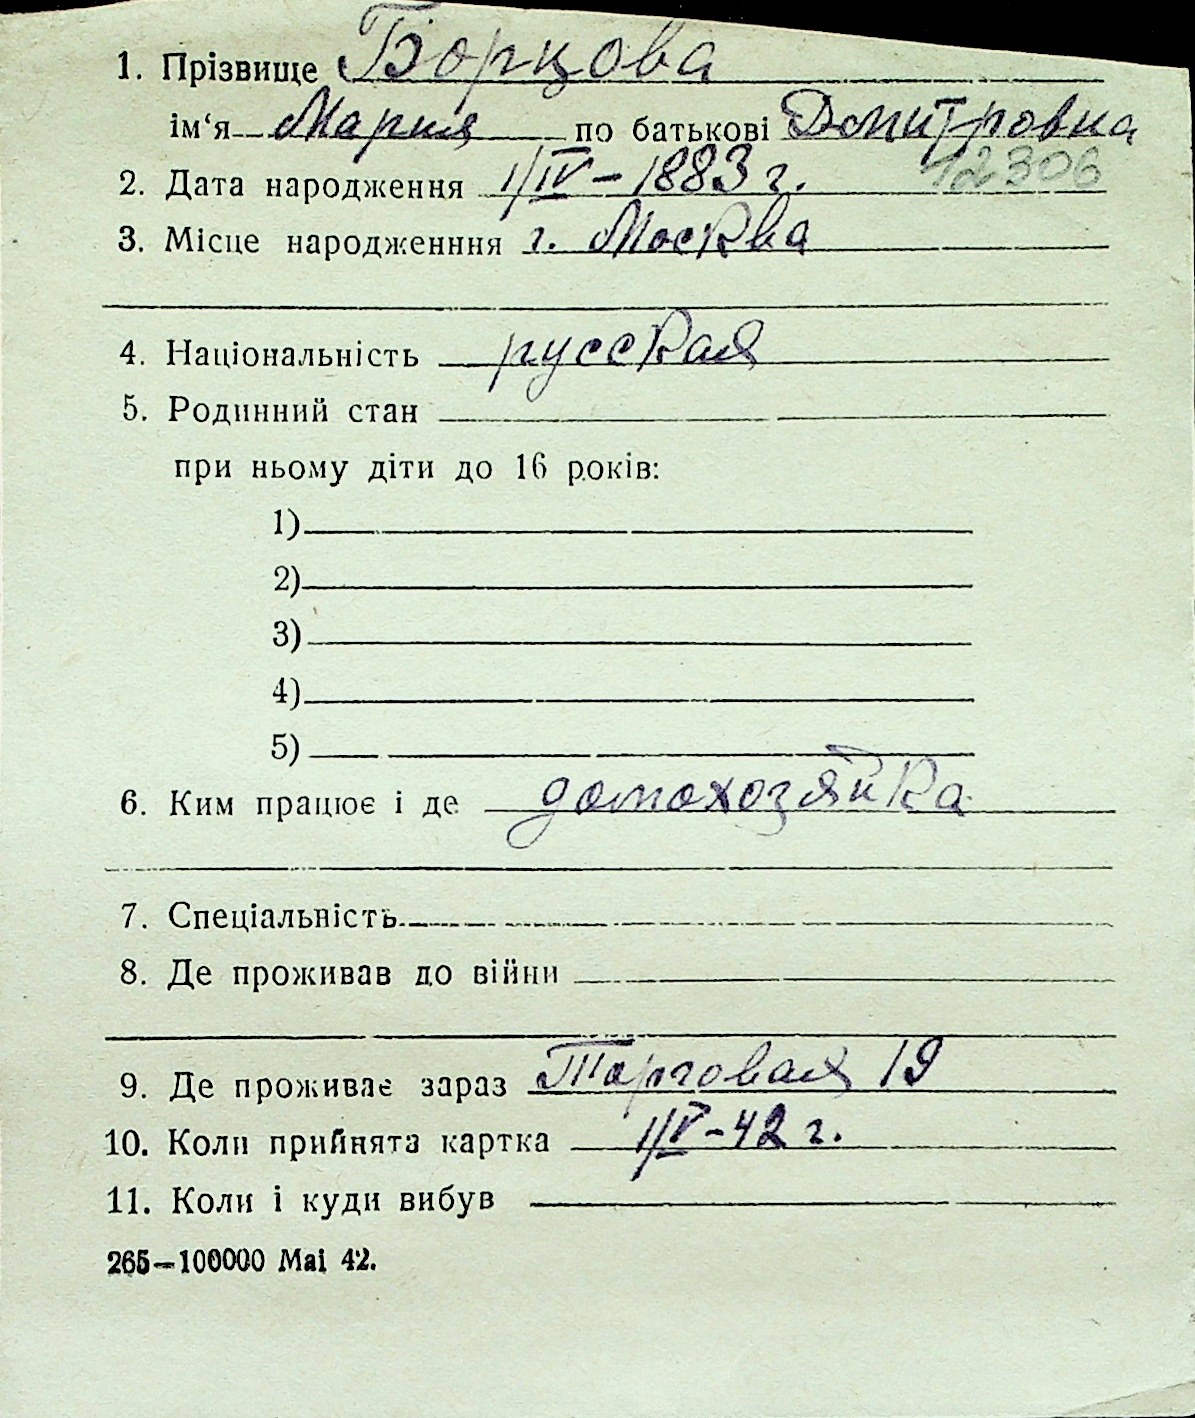 1. Прізвище Борцова
ім‘я Мария по батькові Дмитровна
12306
2. Дата народження 1/IV – 1883 г.
3. Місце народженння г. Москва
4. Національність русская
5. Родинний стан
при ньому діти до 16 років:
1)
2)
3)
4)
5)
6. Ким працює і де домохозяйка
7. Спеціальність
8. Де проживав до війни
9. Де проживає зараз Торговая 19
10. Коли прийнята картка 1/V – 42 г.
11. Коли і куди вибув
265—100000 Mai 42.